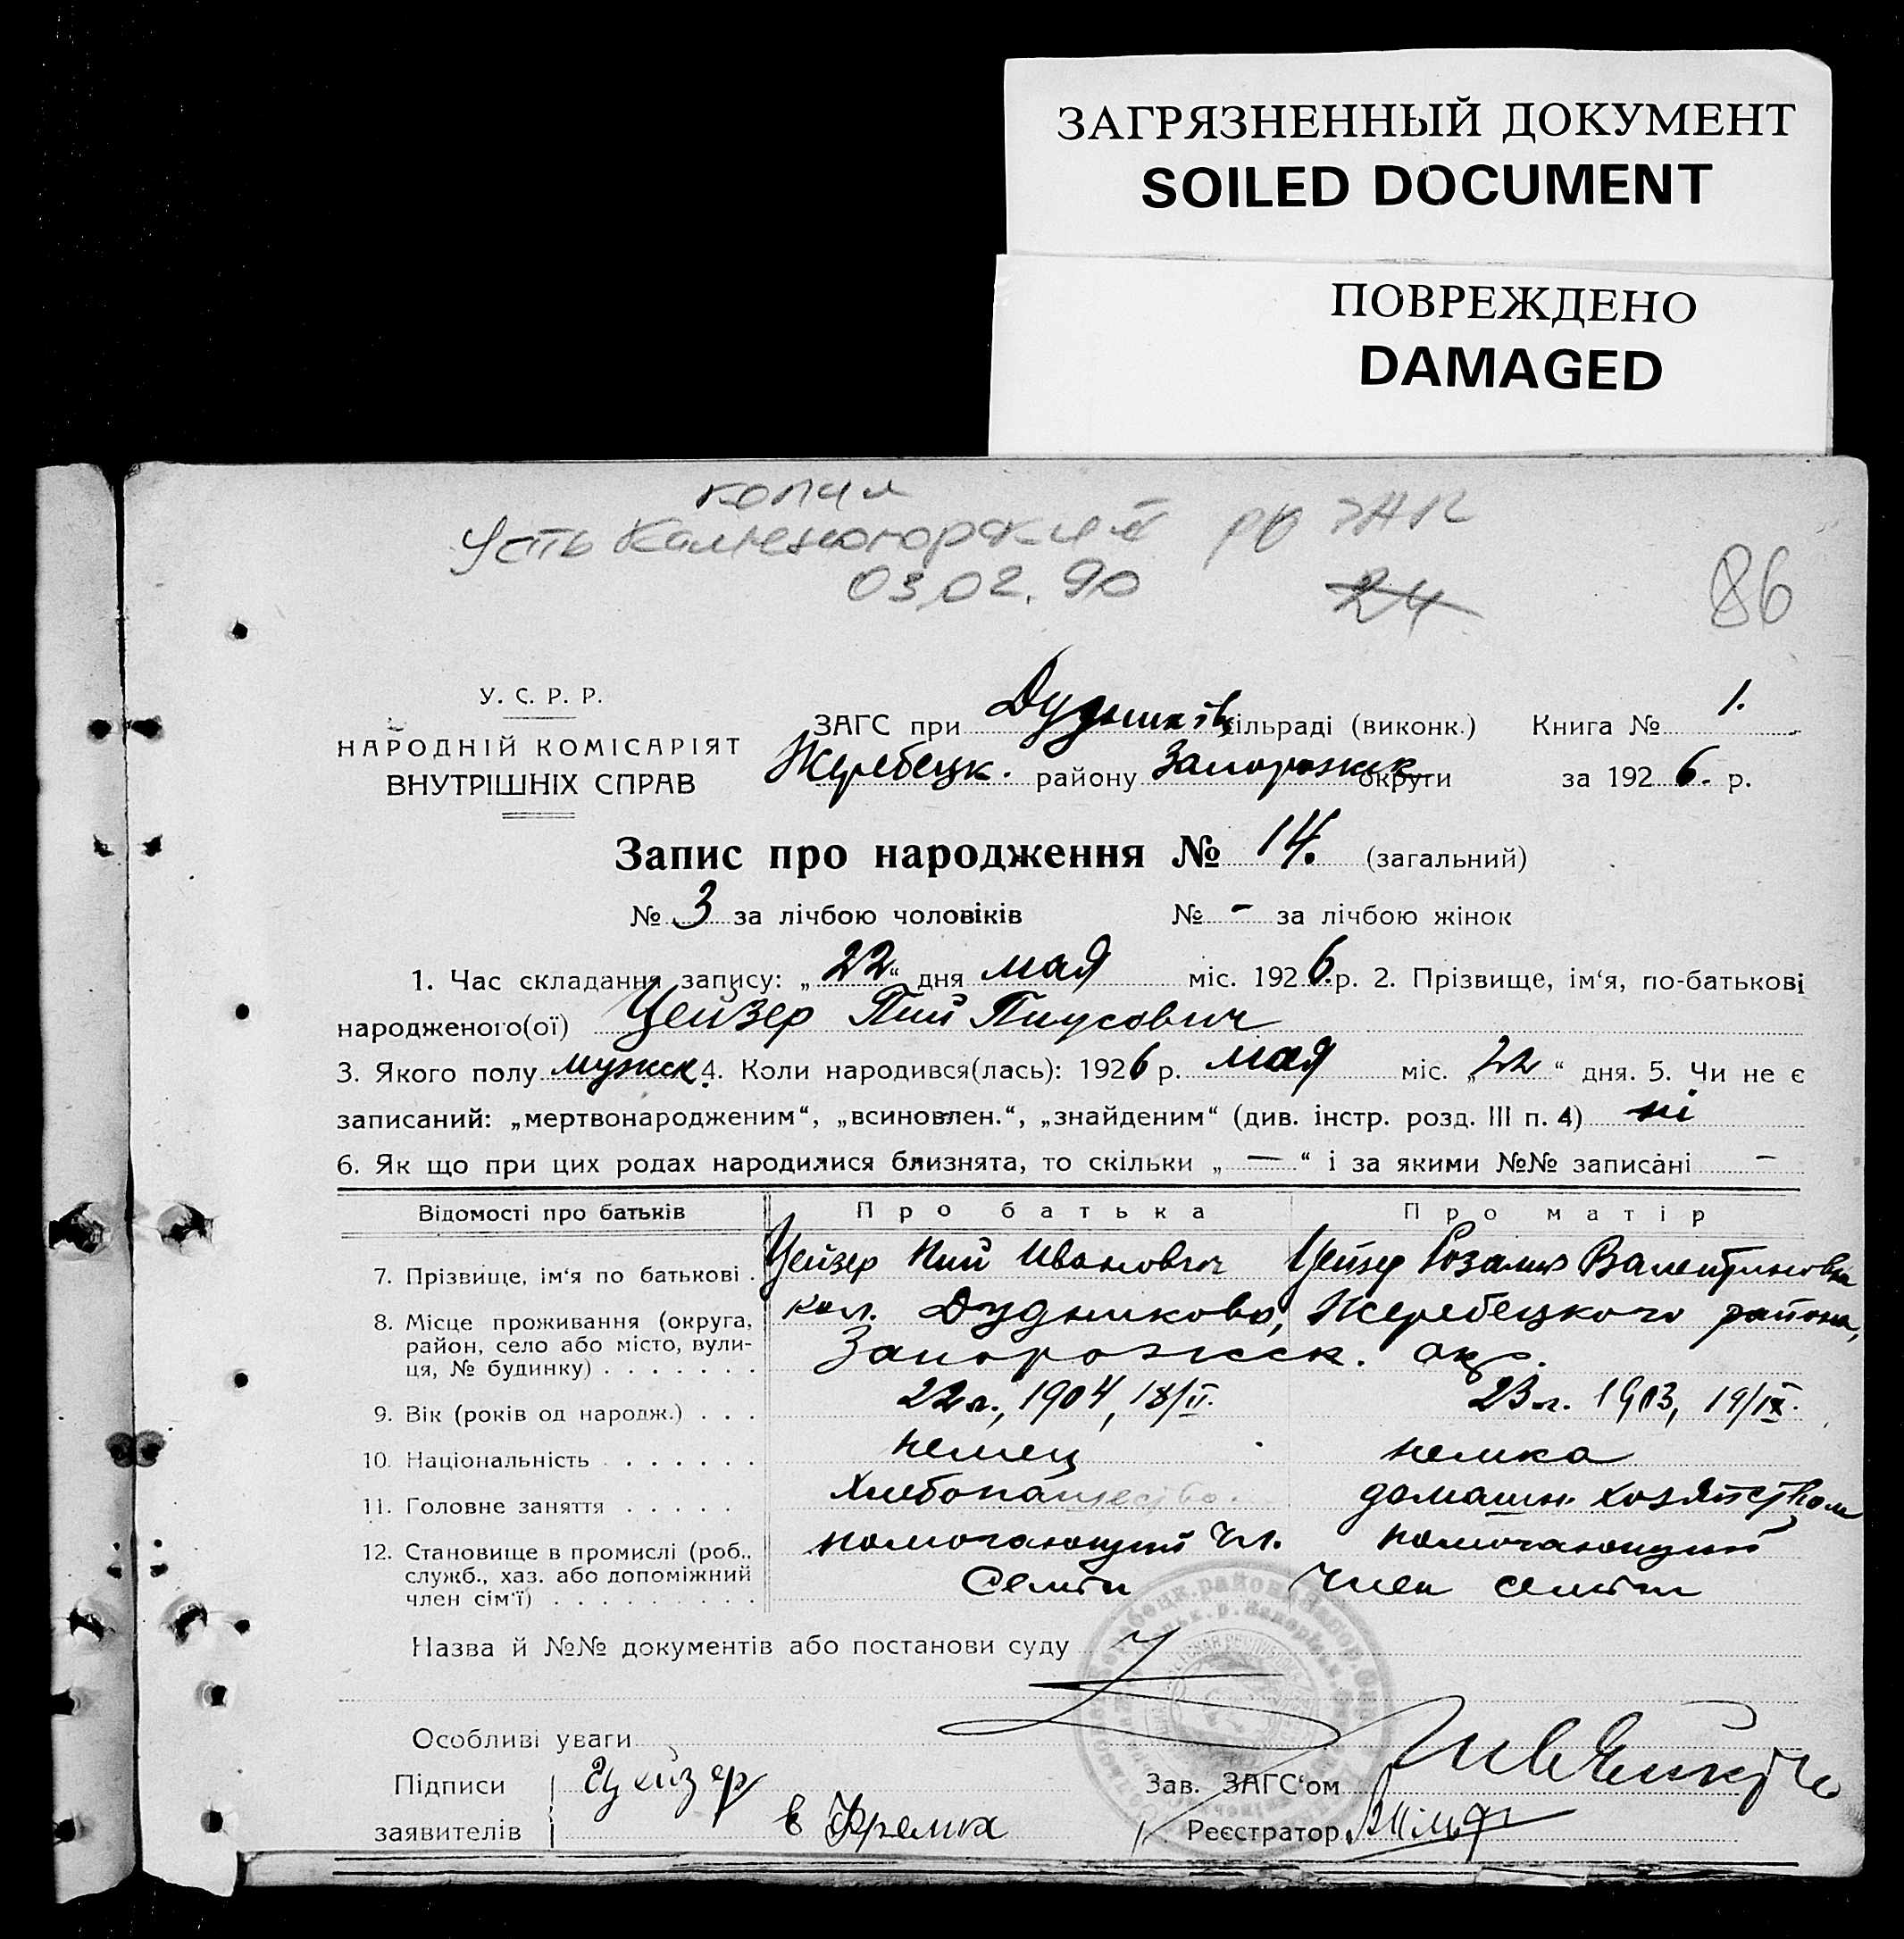 ЗАГРЯЗНЕННЫЙ ДОКУМЕНТ
SOILED DOCUMENT
ПОВРЕЖДЕНО
DAMAGED
копия
Усть Каменогорский РО ЗАГС
03.02.90
24
86
У. С. Р. Р.
НАРОДНІЙ КОМІСАРІЯТ
ВНУТРІШНІХ СПРАВ
ЗАГС при Дудників сільраді (виконк.) Книга № 1.
Жеребецк. району Запорожск округи за 1926. р.
Запис про народження № 14. (загальний)
№ 3 за лічбою чоловіків № - за лічбою жінок
1. Час складання запису: „22“ дня мая міс. 1926.р. 2. Прізвище, ім‘я, по-батькові
народженого(ої) Цейзер Пий Пиусович
3. Якого полу мужск. 4. Коли народився(лась): 1926 р. мая міс. „22“ дня. 5. Чи не є
записаний: „мертвонародженим“, „всиновлен.“, „знайденим“ (див. інстр. розд. III п. 4) ні
6. Як що при цих родах народилися близнята, то скільки „—“ і за якими №№ записані -
Відомості про батьків Про батька Про матір
7. Прізвище, ім‘я по батькові . Цейзер Пий Иванович Цейзер Розалия Валентиновна
8. Місце проживання (округа, район, село або місто, вулиця, № будинку) . . . . . . . кол. Дудниково, Жеребецкого района,
Запорожск. окр.
9. Вік (років од народж.) . . . 22 л., 1904, 18/II. 23 л. 1903, 19/IX.
10. Національність . . . . . . . немец немка
11. Головне заняття . . . . . Хлебопашество. домашн. хозяйством
12. Становище в промислі (роб., служб., хаз. або допоміжний член сім‘ї) . . . . . . . . . помогающий чл. помогающий
Семьи член семьи
Назва й №№ документів або постанови суду
Особливі уваги
Підписи Цейзер Зав. ЗАГС‘ом
заявителів Реєстратор